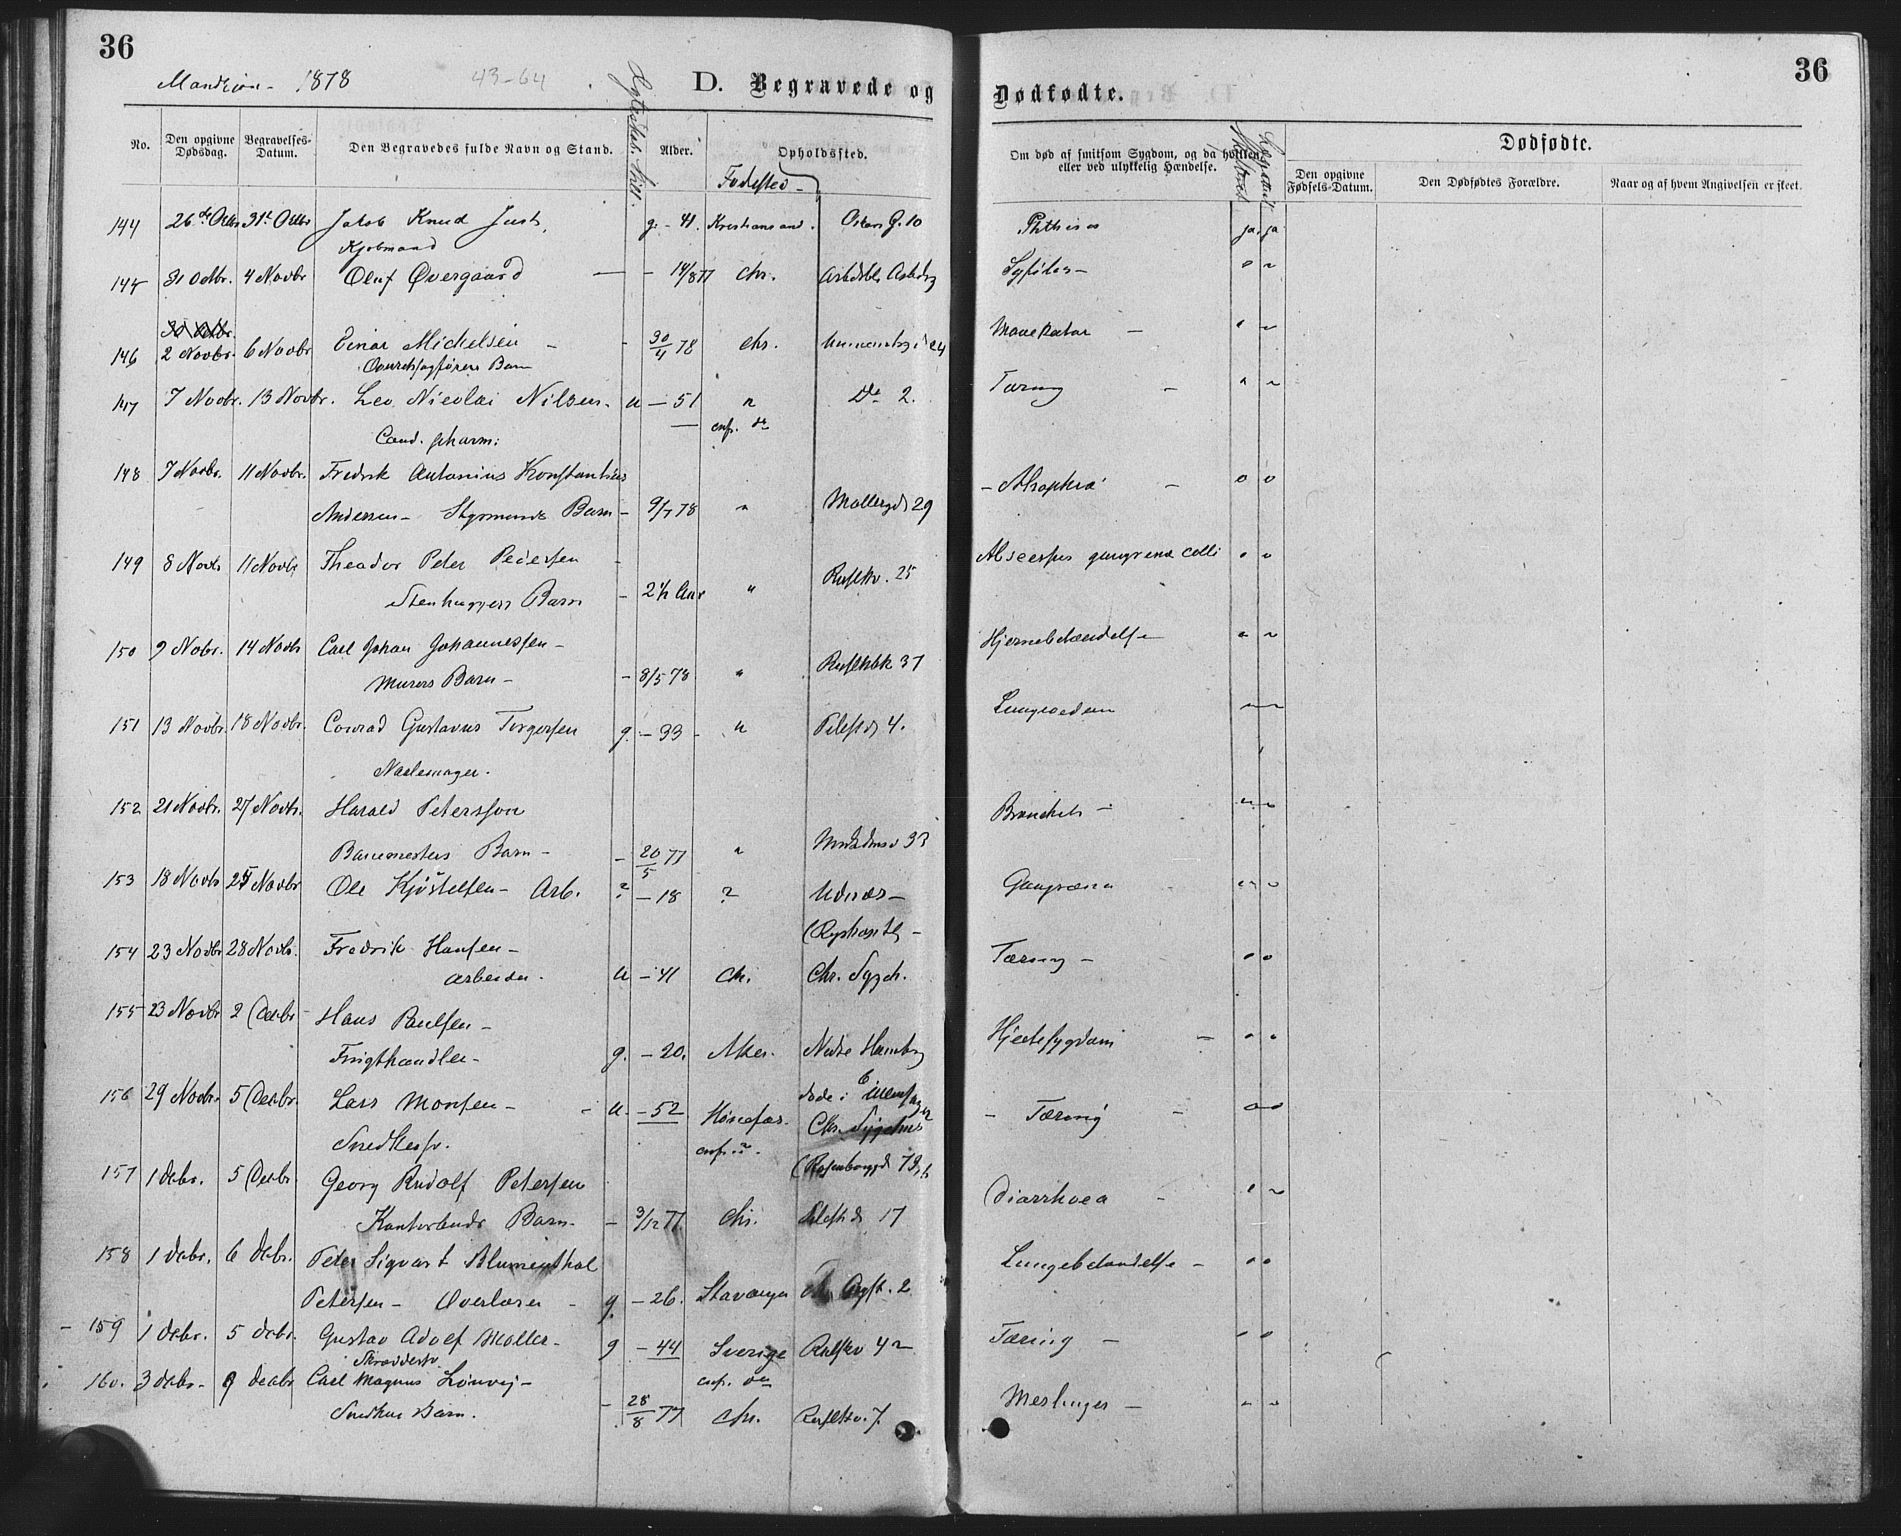 36
36
Mandkjøn - 1878
43-64
D. Begravede og Dødfødte.
No. Den opgivne Dødsdag. Begravelses-Datum. Den Begravedes fulde Navn og Stand. Alder. Opholdssted. Om død af smitsom Sygdom, og da hvilken, eller ved ulykkelig Hændelse.
Fødested -
Dødfødte.
Den opgivne Fødsels-Datum. Den Dødfødtes Forældre. Naar og af hvem Angivelsen er skeet.
144 26de Octbr 31te Octbr Jakob Knud Just, g. - 41. Kristiansand. Oskars G. 10 Phthisis ja. ja
Kjøbmand
145 31 Octbr. 4 Novbr Oluf Øvergaard - 14/8 77 Chr. Syfilis -
30 Octbr.
146 2 Novbr. 6 Novbr Einar Michelsen - 30/4 78 Chr. Mavekatar -
Barn
147 7 Novbr. 13 Novbr. Leo Nicolai Nilsen. u - 51 " Do 2. Tæring -
Cand. pharm.
148 7 Novbr. 11 Novbr. Fredrik Antonius Konstantius - Atrophia -
Andersen - Styrmands Barn - 9/7 78 " Møllergd 29
149 8 Novbr 11 Novbr Theador Peter Pedersen - Abscessus gangrena colli
Stenhuggers Barn - 2 1/2 Aar " Rusløkv. 25
150 9 Nobr. 14 Novbr Carl Johan Johannessen - Hjernebetændelse
Murers Barn - - 8/5 78 " Rusløkbk 37
151 13 Novbr. 18 Novbr. Conrad Gustavus Torgersen g. - 33 - " Pilestd 4. Lungeoedem
Naalemager.
152 21 Novbr. 27 Novbr. Harald Petersson Bronchit -
Banemesters Barn - - 20/5 77 " 33
153 18 Novbr 25 Novbr Ole Kjøstelsen - Arb. ? - 18 ? Udnæs - Gangræna
(Rigshospitl -
154 23 Novbr 28 Novbr. Fredrik Hansen - Tæring -
Arbeider. u - 41 Chr. Chr. Sygeh.
155 23 Novbr 2 Decbr - Hans Paulsen - Hjertesygdom -
Frugthandler - g. - 20. Aker. Nedre
156 29 Novbr. 5 Decbr. Lars Monsen - - u. - 52 Hønefos. Chr. Sygehus - Tæring -
Snedkersv.
157 1 Decbr. 5 Decbr. Georg Rudolf Petersen Diarrhoea -
Kontorbuds Barn - - 3/12 77 Chr. Pilestd 17
158 1 Decbr. 6 Decbr. Peder Sigvart Blumenthal Lungebetændelse -
Petersen - Overlærer - g. - 26. Stavanger 2
159 1 Decbr. 5 Decbr. Gustav Adolf Møller - g - 44 Sverige Rusløkv 42 Tæring -
Skræddersv.
160. 3 Decbr - 9 Decbr Carl Magnus Lønvej - Meslinger -
Snedkers Barn. - 28/8 77 Chr. Rusløkv. 7.